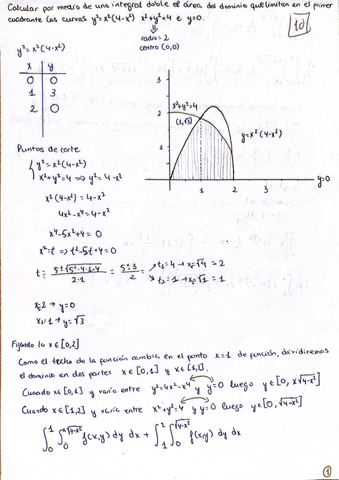 Calcular por medio de una integral doble el área del dominio que limitan en el primer
cuadrante las curvas y²=x²(4-x²) x²+y²=4 e y=0.
10
radio=2
centro (0,0)
y²=x²(4-x²)
x y
0 0
1 3
2 0
3
2
1
0 1 2 3
x²+y²=4
(1,√3)
y=x²(4-x²)
y=0
Puntos de corte
y²=x²(4-x²)
x²+y²=4 ⇒ y²=4-x²
x²(4-x²)=4-x²
4x²-x⁴=4-x²
x⁴-5x²+4=0
x²=t ⇒ t²-5t+4=0
t= 5±√5²-4·1·4 / 2·1 = 5±3 / 2 = t₁=4 → x=√4=2
t₂=1 → x=√1=1
x=2 → y=0
x=1 → y=√3
Fijando la x∈[0,2]
Como el techo de la función cambia en el punto x=1 de función, dividiremos
el dominio en dos partes x∈[0,1] y x∈[1,2].
Cuando x∈[0,1] y varía entre y²=4x²-x⁴ y y=0 luego y∈[0, x√4-x²]
Cuando x∈[1,2] y varía entre x²+y²=4 y y=0 luego y∈[0,√4-x²]
∫₀¹∫₀^(x√4-x²) f(x,y) dy dx + ∫₁²∫₀^(√4-x²) f(x,y) dy dx
1